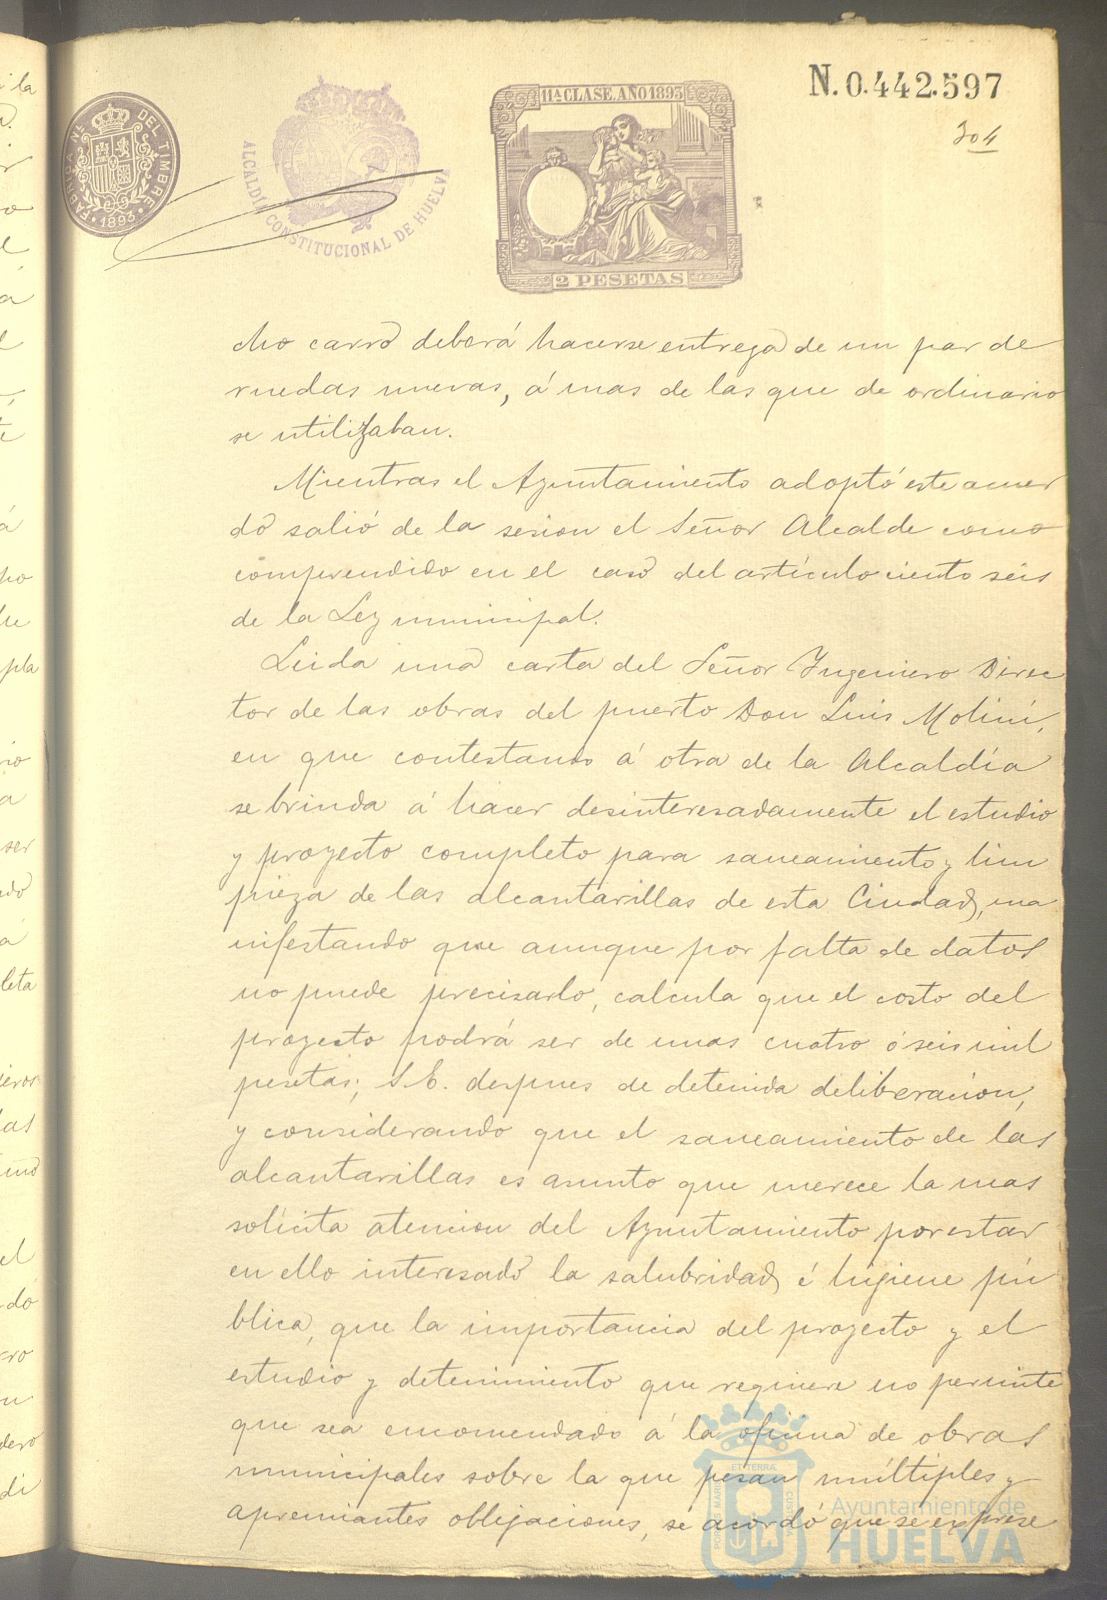 N. 0.442.597
304
FABRICA Nal DEL TIMBRE
1893
ALCALDÍA CONSTITUCIONAL DE HUELVA
11ª CLASE. AÑO 1893
2 PESETAS
cho carro deberá hacerse entrega de un par de
ruedas nuevas, á mas de las que de ordinario
se utilizaban.
Mientras el Ayuntamiento adoptó este acuer
do salió de la sesion el Señor Alcalde como
comprendido en el caso del artículo ciento seis
de la Ley municipal.
Leida una carta del Señor Ingeniero Direc
tor de las obras del puerto Don Luis Molini,
en que contestando á otra de la Alcaldía
se brinda á hacer desinteresadamente el estudio
y proyecto completo para saneamiento y lim
pieza de las alcantarillas de esta Ciudad, ma
nifestando que aunque por falta de datos
no puede precisarlo, calcula que el costo del
proyecto podrá ser de unas cuatro ó seis mil
pesetas; S.E. despues de detenida deliberacion,
y considerando que el saneamiento de las
alcantarillas es asunto que merece la mas
solícita atencion del Ayuntamiento por estar
en ello interesado la salubridad é higiene pú
blica, que la importancia del proyecto y el
estudio y detenimiento que requiere no permite
que sea encomendado á la oficina de obras
municipales sobre la que pesan múltiples y
apremiantes obligaciones, se acordó que se exprese
Ayuntamiento de
HUELVA